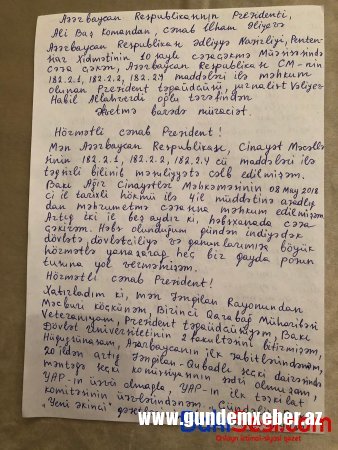 Azərbaycan Respublikasının Prezidenti,
Ali Baş Komandan, cənab İlham Əliyevə
Azərbaycan Respublikası Ədliyyə Nazirliyi, Peniten-
siar Xidmətinin 10 saylı cəzaçəkmə Müəssisəsində
cəza çəkən, Azərbaycan Respublikası CM-nin
182.2.1, 182.2.2, 182.2.4 maddələri ilə məhkum
olunan Prezident təpəüdçüsü, jurnalist Vəliyev
Habil Allahverdi oğlu tərəfindən
Əfvetmə barədə müraciət.
Hörmətli cənab Prezident!
Mən Azərbaycan Respublikası, Cinayət Məcəllə-
sinin 182.2.1, 182.2.2, 182.2.4 cü maddələri ilə
təqsirli bilinib məsuliyyətə cəlb edilmişəm.
Bakı Ağır Cinayətlər Məhkəməsinin 08 May 2018
ci il tarixli hökmü ilə 4 il müddətinə azadlıq-
dan məhrumetmə cəzasına məhkum edilmişəm.
Artıq iki il beş aydır ki, həbsxanada cəza
çəkirəm. Həbs olunduğum gündən indiyədək
dövlətə, dövlətçiliyə və qanunlarımıza böyük
hörmətlə yanaşaraq heç bir qayda pozun-
tusuna yol verməmişəm.
Hörmətli cənab Prezident!
Xatırladım ki, mən Zəngilan Rayonundan
Məcburi köçkünəm, Birinci Qarabağ Müharibəsi
Veteranıyam, Prezident təpəüdçüsüyəm, Bakı
Dövlət Universitetinin 2 fakultəsini bitirmişəm,
Hüquqşünasam, Azərbaycanın ilk zabitlərindənəm,
20 ildən artıq Zəngilan-Qubadlı seçki dairəsində
məntəqə seçki komissiyasının sədri olmuşam,
YAP-ın üzvü olmaqla, YAP-ın ilk təşkilat
komitəsinin üzvlərindənəm.
"Yeni əkinçi"
www.gundemxeber.az
DunyaSesi.com
Onlayn ictimai-siyasi qəzet